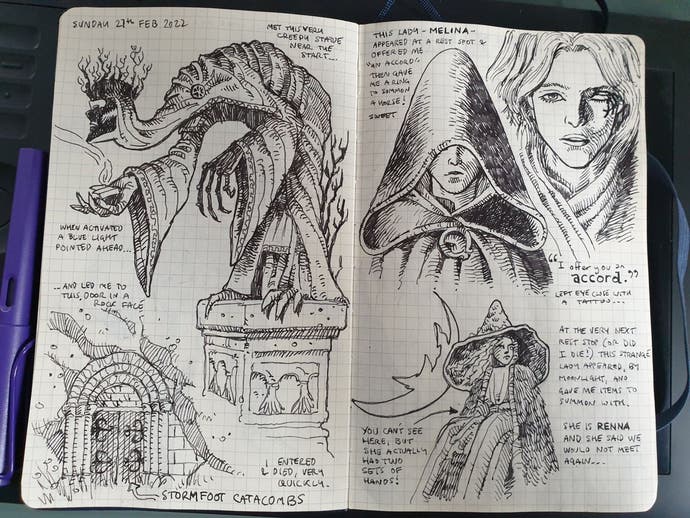 SUNDAY 27TH FEB 2022
MET THIS VERY
CREEPY STATUE
NEAR THE
START...
WHEN ACTIVATED
A BLUE LIGHT
POINTED AHEAD...
...AND LED ME TO
THIS DOOR IN A
ROCK FACE
I ENTERED
& DIED, VERY
QUICKLY.
STORMFOOT CATACOMBS
THIS LADY - MELINA -
APPEARED AT A REST SPOT &
OFFERED ME
"AN ACCORD".
THEN GAVE
ME A RING
TO SUMMON
A HORSE!
SWEET
"I offer you an
accord."
LEFT EYE CLOSE WITH
A TATTOO...
AT THE VERY NEXT
REST STOP (OR DID
I DIE?) THIS STRANGE
LADY APPEARED, BY
MOONLIGHT, AND
GAVE ME ITEMS TO
SUMMON WITH.
SHE IS RENNA
AND SHE SAID WE
WOULD NOT MEET
AGAIN...
YOU CAN'T SEE
HERE, BUT
SHE ACTUALLY
HAD TWO
SETS OF
HANDS!